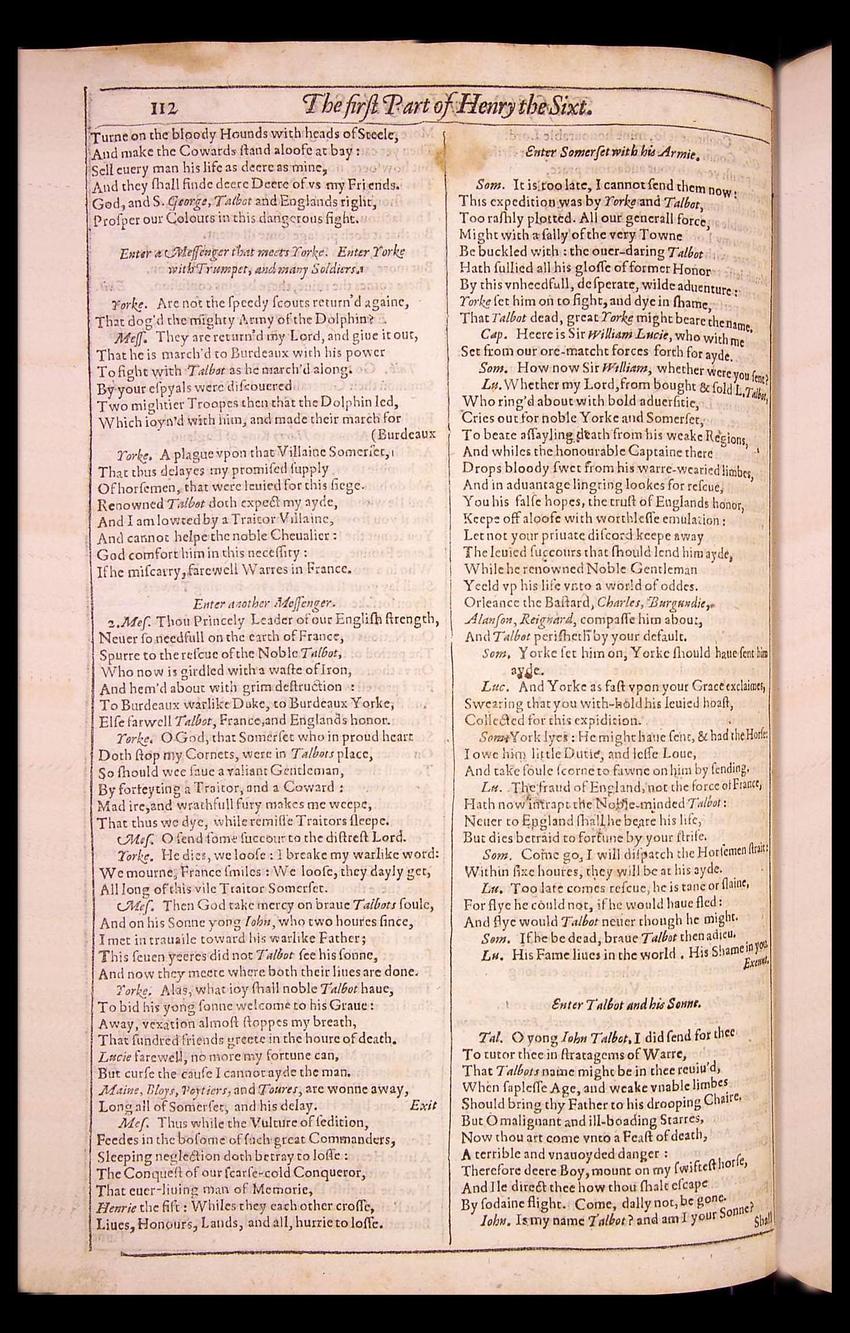 112
The first Part of Henry the Sixt.
Turne on the bloody Hounds with heads of Steele,
And make the Cowards ſtand aloofe at bay :
Sell euery man his life as deere as mine,
And they ſhall finde deere Deere of vs my Friends.
God, and S. George, Talbot and Englands right,
Proſper our Colours in this dangerous fight.
Enter a Meſſenger that meets Yorke. Enter Yorke
with Trumpet, and many Soldiers.
Yorke. Are not the ſpeedy ſcouts return'd againe,
That dog'd the mighty Army of the Dolphin?
Meſſ. They are return'd my Lord, and giue it out,
That he is march'd to Burdeaux with his power
To fight with Talbot as he march'd along.
By your eſpyals were diſcouered
Two mightier Troopes then that the Dolphin led,
Which ioyn'd with him, and made their march for
(Burdeaux
Yorke. A plague vpon that Villaine Somerſet,
That thus delayes my promiſed ſupply
Of horſemen, that were leuied for this ſiege.
Renowned Talbot doth expect my ayde,
And I am lowted by a Traitor Villaine,
And cannot helpe the noble Cheualier :
God comfort him in this neceſſity :
If he miſcarry, farewell Warres in France.
Enter another Meſſenger.
2.Meſ. Thou Princely Leader of our Engliſh ſtrength,
Neuer ſo needfull on the earth of France,
Spurre to the reſcue of the Noble Talbot,
Who now is girdled with a waſte of Iron,
And hem'd about with grim deſtruction :
To Burdeaux warlike Duke, to Burdeaux Yorke,
Elſe farwell Talbot, France, and Englands honor.
Yorke. O God, that Somerſet who in proud heart
Doth ſtop my Cornets, were in Talbots place,
So ſhould wee ſaue a valiant Gentleman,
By forfeyting a Traitor, and a Coward :
Mad ire, and wrathfull fury makes me weepe,
That thus we dye, while remiſſe Traitors ſleepe.
Meſ. O ſend ſome ſuccour to the diſtreſt Lord.
Yorke. He dies, we looſe : I breake my warlike word:
We mourne, France ſmiles : We looſe, they dayly get,
All long of this vile Traitor Somerſet.
Meſ. Then God take mercy on braue Talbots ſoule,
And on his Sonne yong Iohn, who two houres ſince,
I met in trauaile toward his warlike Father;
This ſeuen yeeres did not Talbot ſee his ſonne,
And now they meete where both their liues are done.
Yorke. Alas, what ioy ſhall noble Talbot haue,
To bid his yong ſonne welcome to his Graue :
Away, vexation almoſt ſtoppes my breath,
That ſundred friends greete in the houre of death.
Lucie farewell, no more my fortune can,
But curſe the cauſe I cannot ayde the man.
Maine, Bloys, Poytiers, and Toures, are wonne away,
Long all of Somerſet, and his delay. Exit
Meſ. Thus while the Vulture of ſedition,
Feedes in the boſome of ſuch great Commanders,
Sleeping neglection doth betray to loſſe :
The Conqueſt of our ſcarſe-cold Conqueror,
That euer-liuing man of Memorie,
Henrie the fift : Whiles they each other croſſe,
Liues, Honours, Lands, and all, hurrie to loſſe.
Enter Somerſet with his Armie.
Som. It is too late, I cannot ſend them now :
This expedition was by Yorke and Talbot,
Too raſhly plotted. All our generall force,
Might with a ſally of the very Towne
Be buckled with : the ouer-daring Talbot
Hath ſullied all his gloſſe of former Honor
By this vnheedfull, deſperate, wilde aduenture :
Yorke ſet him on to fight, and dye in ſhame,
That Talbot dead, great Yorke might beare the name.
Cap. Heere is Sir William Lucie, who with me
Set from our ore-matcht forces forth for ayde.
Som. How now Sir William, whether were you ſent?
Lu. Whether my Lord, from bought & ſold L. Talbot,
Who ring'd about with bold aduerſitie,
Cries out for noble Yorke and Somerſet,
To beate aſſayling death from his weake Regions,
And whiles the honourable Captaine there
Drops bloody ſwet from his warre-wearied limbes,
And in aduantage lingring lookes for reſcue,
You his falſe hopes, the truſt of Englands honor,
Keepe off aloofe with worthleſſe emulation :
Let not your priuate diſcord keepe away
The leuied ſuccours that ſhould lend him ayde,
While he renowned Noble Gentleman
Yeeld vp his life vnto a world of oddes.
Orleance the Baſtard, Charles, Burgundie,
Alanſon, Reignard, compaſſe him about,
And Talbot periſheth by your default.
Som. Yorke ſet him on, Yorke ſhould haue ſent him
ayde.
Luc. And Yorke as faſt vpon your Grace exclaimes,
Swearing that you with-hold his leuied hoaſt,
Collected for this expidition.
Som. York lyes : He might haue ſent, & had the Horſe:
I owe him little Dutie, and leſſe Loue,
And take foule ſcorne to fawne on him by ſending.
Lu. The fraud of England, not the force of France,
Hath now intrapt the Noble-minded Talbot :
Neuer to England ſhall he beare his life,
But dies betraid to fortune by your ſtrife.
Som. Come go, I will diſpatch the Horſemen ſtrait:
Within ſixe houres, they will be at his ayde.
Lu. Too late comes reſcue, he is tane or ſlaine,
For flye he could not, if he would haue fled :
And flye would Talbot neuer though he might.
Som. If he be dead, braue Talbot then adieu.
Lu. His Fame liues in the world . His Shame in you.
Exeunt.
Enter Talbot and his Sonne.
Tal. O yong Iohn Talbot, I did ſend for thee
To tutor thee in ſtratagems of Warre,
That Talbots name might be in thee reuiu'd,
When ſapleſſe Age, and weake vnable limbes
Should bring thy Father to his drooping Chaire.
But O malignant and ill-boading Starres,
Now thou art come vnto a Feaſt of death,
A terrible and vnauoyded danger :
Therefore deere Boy, mount on my ſwifteſt horſe,
And Ile direct thee how thou ſhalt eſcape
By ſodaine flight. Come, dally not, be gone.
Iohn. Is my name Talbot? and am I your Sonne?
Shall